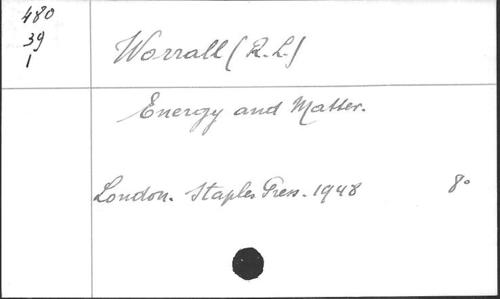 480
39
1
Worrall (R.L.)
Energy and Matter.
London. Staples Press. 1948 8°